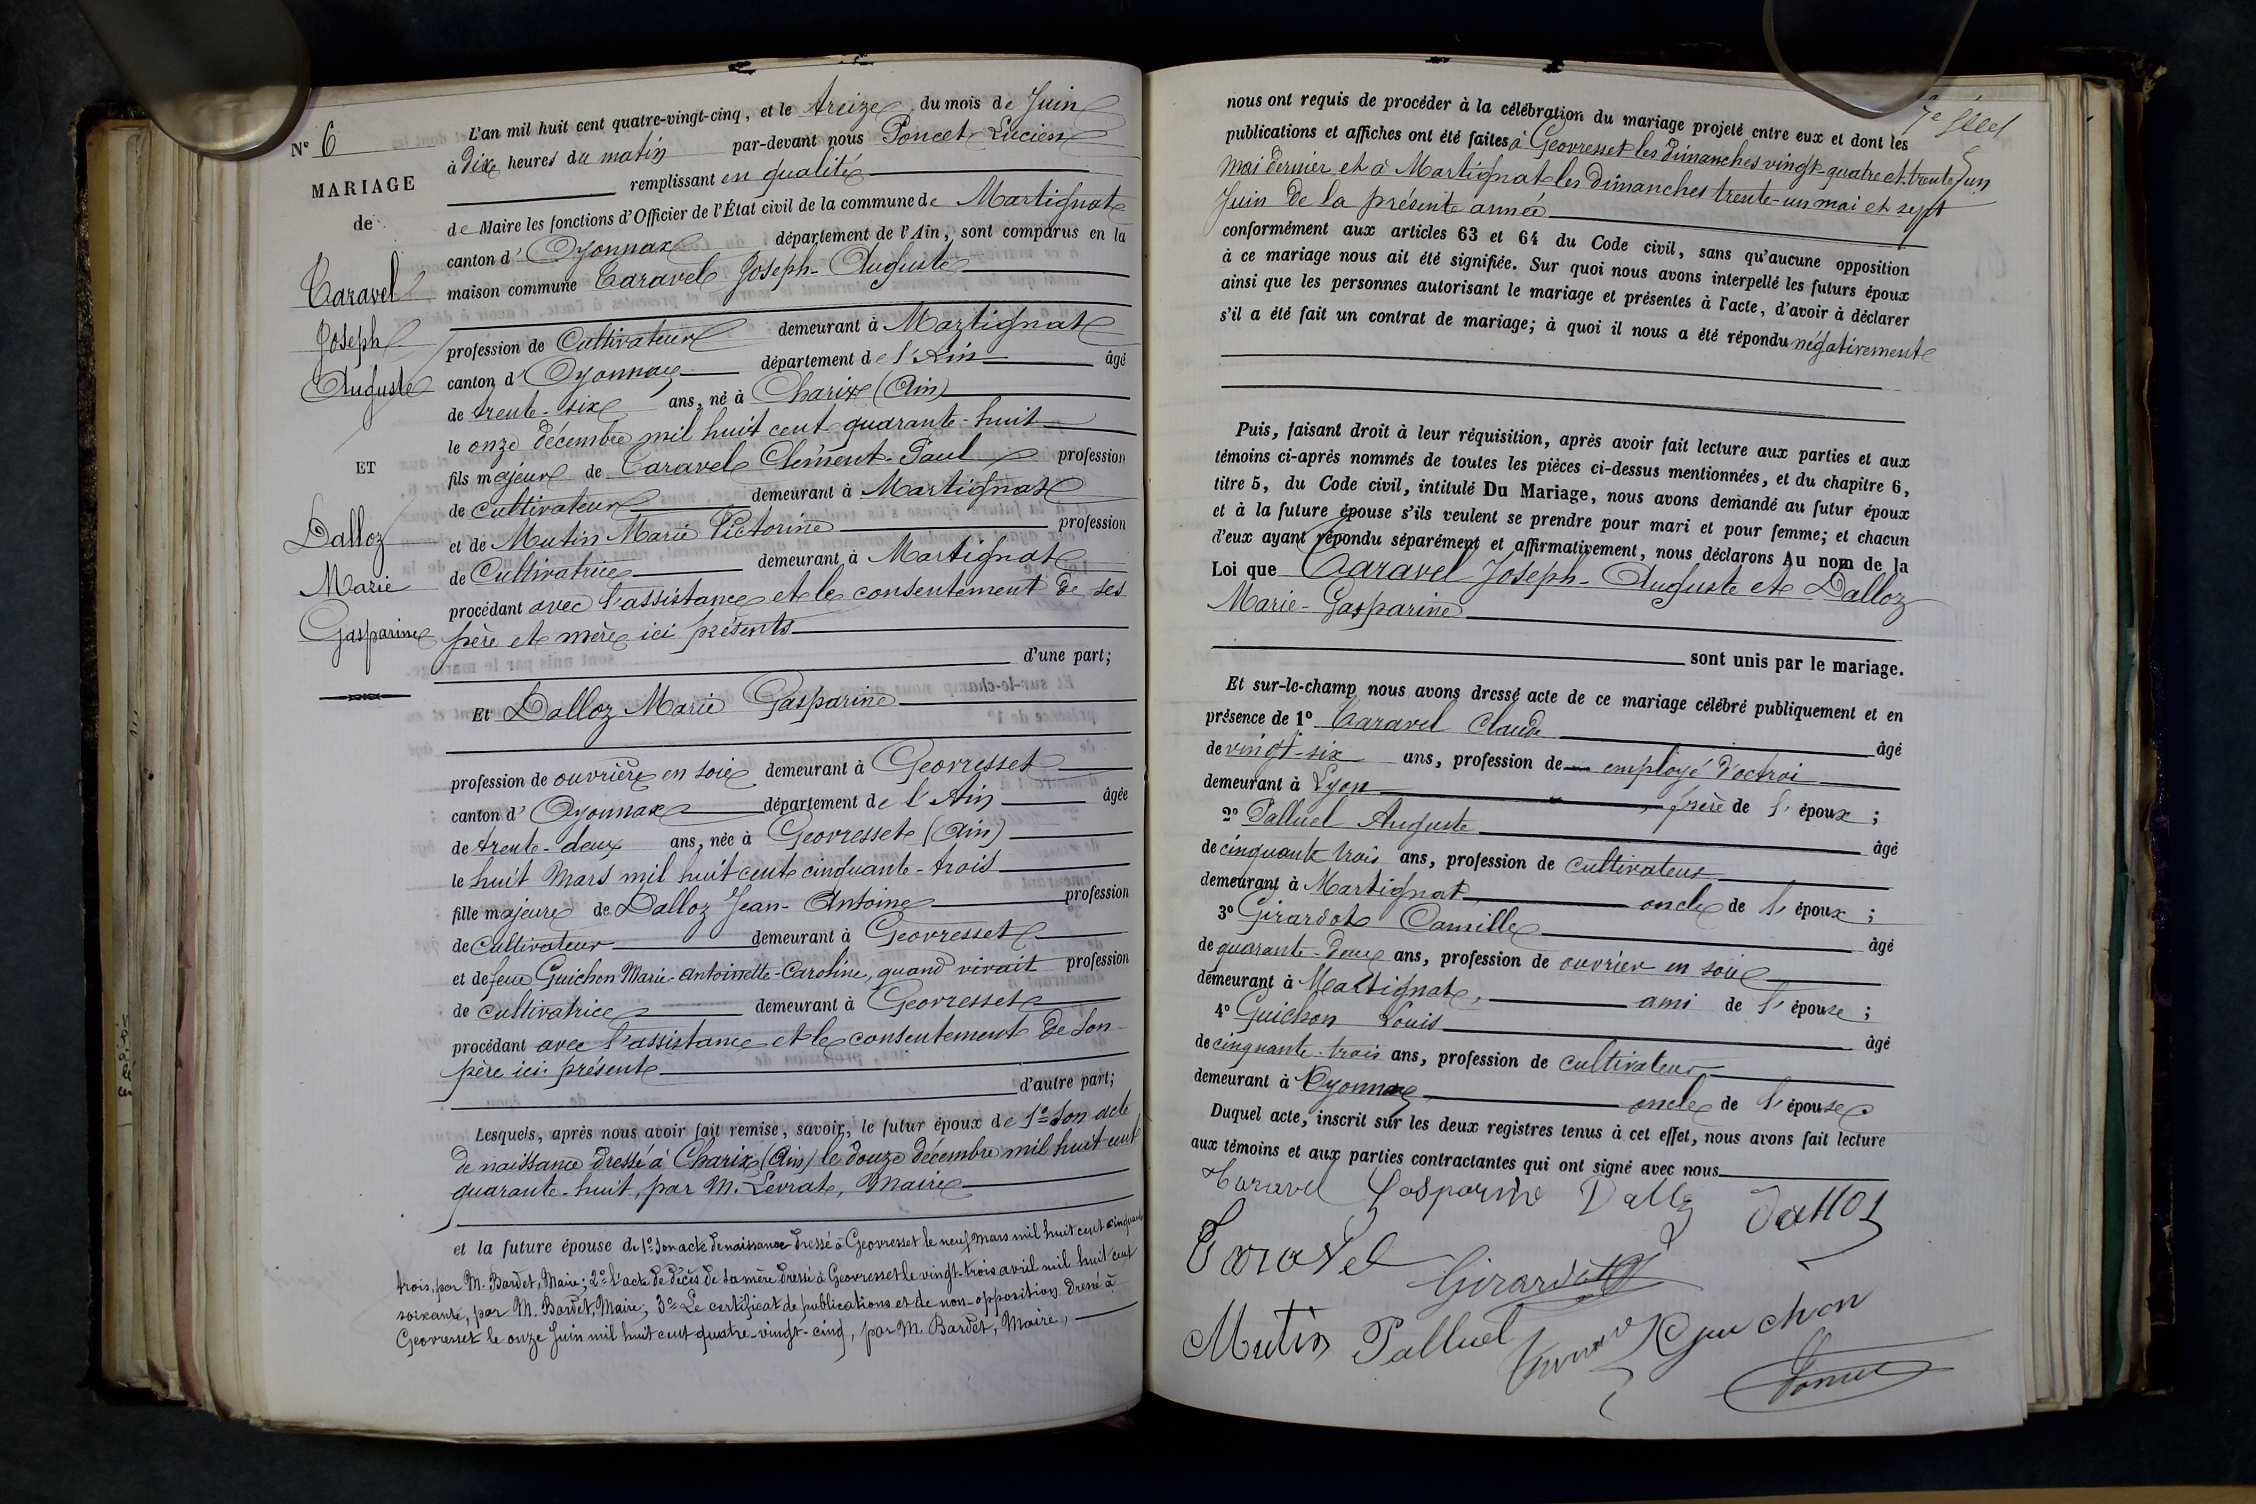 N° 6
MARIAGE
de
Caravel
Joseph
Auguste
ET
Dalloz
Marie
Gasparine
L'an mil huit cent quatre-vingt-cinq, et le treize du mois de Juin
à dix heures du matin par-devant nous Poncet Lucien
remplissant en qualité
de Maire les fonctions d'Officier de l'État civil de la commune de Martignat
canton d'Oyonnax département de l'Ain, sont comparus en la
maison commune Caravel Joseph-Auguste
profession de Cultivateur demeurant à Martignat
canton d'Oyonnax département de l'Ain âgé
de trente-six ans, né à Charix (Ain)
le onze décembre mil huit cent quarante-huit
fils majeur de Caravel Clément-Paul profession
de cultivateur demeurant à Martignat
et de Mutin Marie Victorine profession
de Cultivatrice demeurant à Martignat
procédant avec l'assistance et le consentement de ses
père et mère ici présents
d'une part;
Et Dalloz Marie Gasparine
profession de ouvrière en soie demeurant à Geovresset
canton d'Oyonnax département de l'Ain âgée
de trente-deux ans, née à Geovresset (Ain)
le huit Mars mil huit cent cinquante-trois
fille majeure de Dalloz Jean-Antoine profession
de Cultivateur demeurant à Geovresset
et de feue Guichon Marie-Antoinette-Caroline, quand vivait profession
de cultivatrice demeurant à Geovresset
procédant avec l'assistance et le consentement de son
père ici présent
d'autre part;
Lesquels, après nous avoir fait remise, savoir, le futur époux de 1° son acte
de naissance dressé à Charix (Ain) le douze décembre mil huit cent
quarante-huit, par M. Levrat, Maire
et la future épouse de 1° son acte de naissance dressé à Geovresset le neuf mars mil huit cent cinquante
trois, par M. Bardet, Maire; 2° l'acte de décès de sa mère dressé à Geovresset le vingt-trois avril mil huit cent
soixante, par M. Bardet, Maire; 3° Le certificat de publications et de non-opposition dressé à
Geovresset le onze Juin mil huit cent quatre-vingt-cinq, par M. Bardet, Maire,
nous ont requis de procéder à la célébration du mariage projeté entre eux et dont les
publications et affiches ont été faites à Geovresset les dimanches vingt-quatre et trente-un
mai dernier et à Martignat les dimanches trente-un mai et sept
Juin de la présente année
conformément aux articles 63 et 64 du Code civil, sans qu'aucune opposition
à ce mariage nous ait été signifiée. Sur quoi nous avons interpellé les futurs époux
ainsi que les personnes autorisant le mariage et présentes à l'acte, d'avoir à déclarer
s'il a été fait un contrat de mariage; à quoi il nous a été répondu négativement
Puis, faisant droit à leur réquisition, après avoir fait lecture aux parties et aux
témoins ci-après nommés de toutes les pièces ci-dessus mentionnées, et du chapitre 6,
titre 5, du Code civil, intitulé Du Mariage, nous avons demandé au futur époux
et à la future épouse s'ils veulent se prendre pour mari et pour femme; et chacun
d'eux ayant répondu séparément et affirmativement, nous déclarons Au nom de la
Loi que Caravel Joseph-Auguste et Dalloz
Marie-Gasparine
sont unis par le mariage.
Et sur-le-champ nous avons dressé acte de ce mariage célébré publiquement et en
présence de 1° Caravel Claude âgé
de vingt-six ans, profession de employé d'octroi
demeurant à Lyon, frère de l'époux;
2° Palluel Auguste âgé
de cinquante trois ans, profession de cultivateur
demeurant à Martignat, oncle de l'époux;
3° Girardot Camille âgé
de quarante-deux ans, profession de ouvrier en soie
demeurant à Martignat, ami de l'épouse;
4° Guichon Louis âgé
de cinquante-trois ans, profession de cultivateur
demeurant à Oyonnax, oncle de l'épouse.
Duquel acte, inscrit sur les deux registres tenus à cet effet, nous avons fait lecture
aux témoins et aux parties contractantes qui ont signé avec nous
Caravel Gasparine Dalloz Dalloz
Caravel Girardot
Mutin Palluel Guichon
Poncet